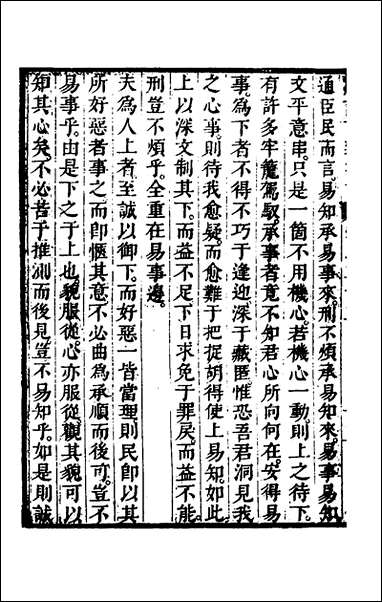 通臣民而言易知承易事來刑不煩承易知來易事易知
文平意串只是一箇不用機心若機心一動則上之待下
有許多牢籠駕馭承事者竟不知君心所向何在安得易
事為下者不得不巧于逢迎深于藏匿惟恐吾君洞見我
之心事則待我愈疑而愈難于把捉胡得使上易知如此
上以深文制其下而益不足下日求免于罪戾而益不能
刑豈不煩乎全重在易事邊
夫為人上者至誠以御下而好惡一皆當理則民卽以其
所好惡者事之而卽愜其意不必曲為承順而後可豈不
易事乎由是下之于上也貌服從心亦服從觀其貌可以
知其心矣不必苦于推測而後見豈不易知乎如是則誠